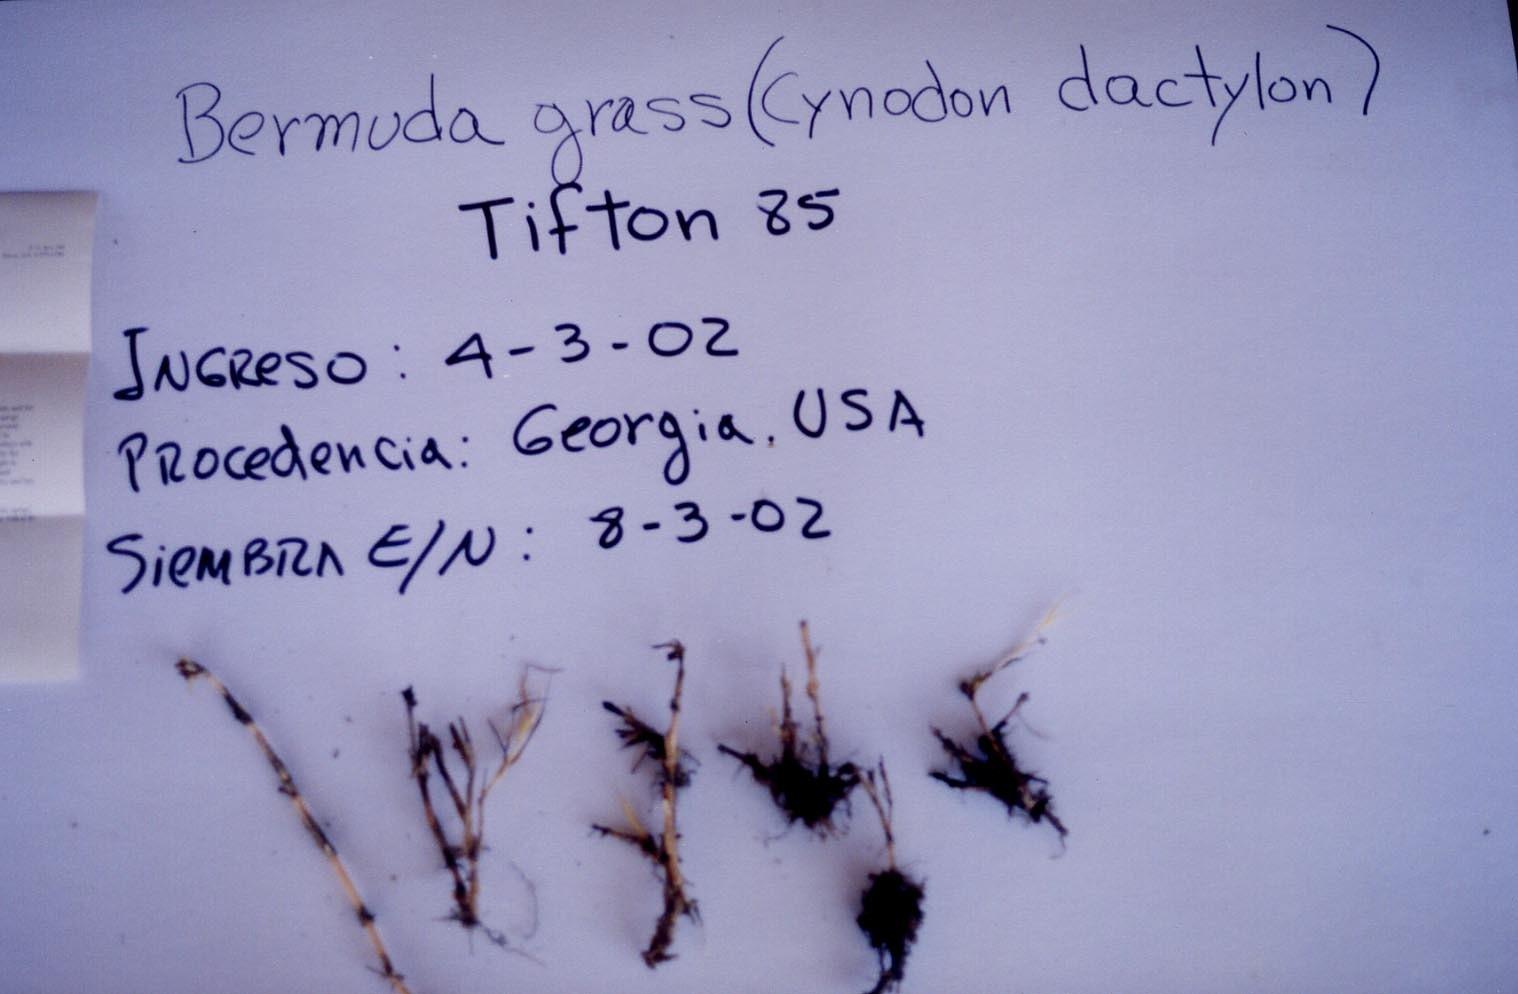 Bermuda grass (Cynodon dactylon)
Tifton 85
INGReSO: 4-3-02
PROcedencia: Georgia. USA
SieMBRA E/N: 8-3-02